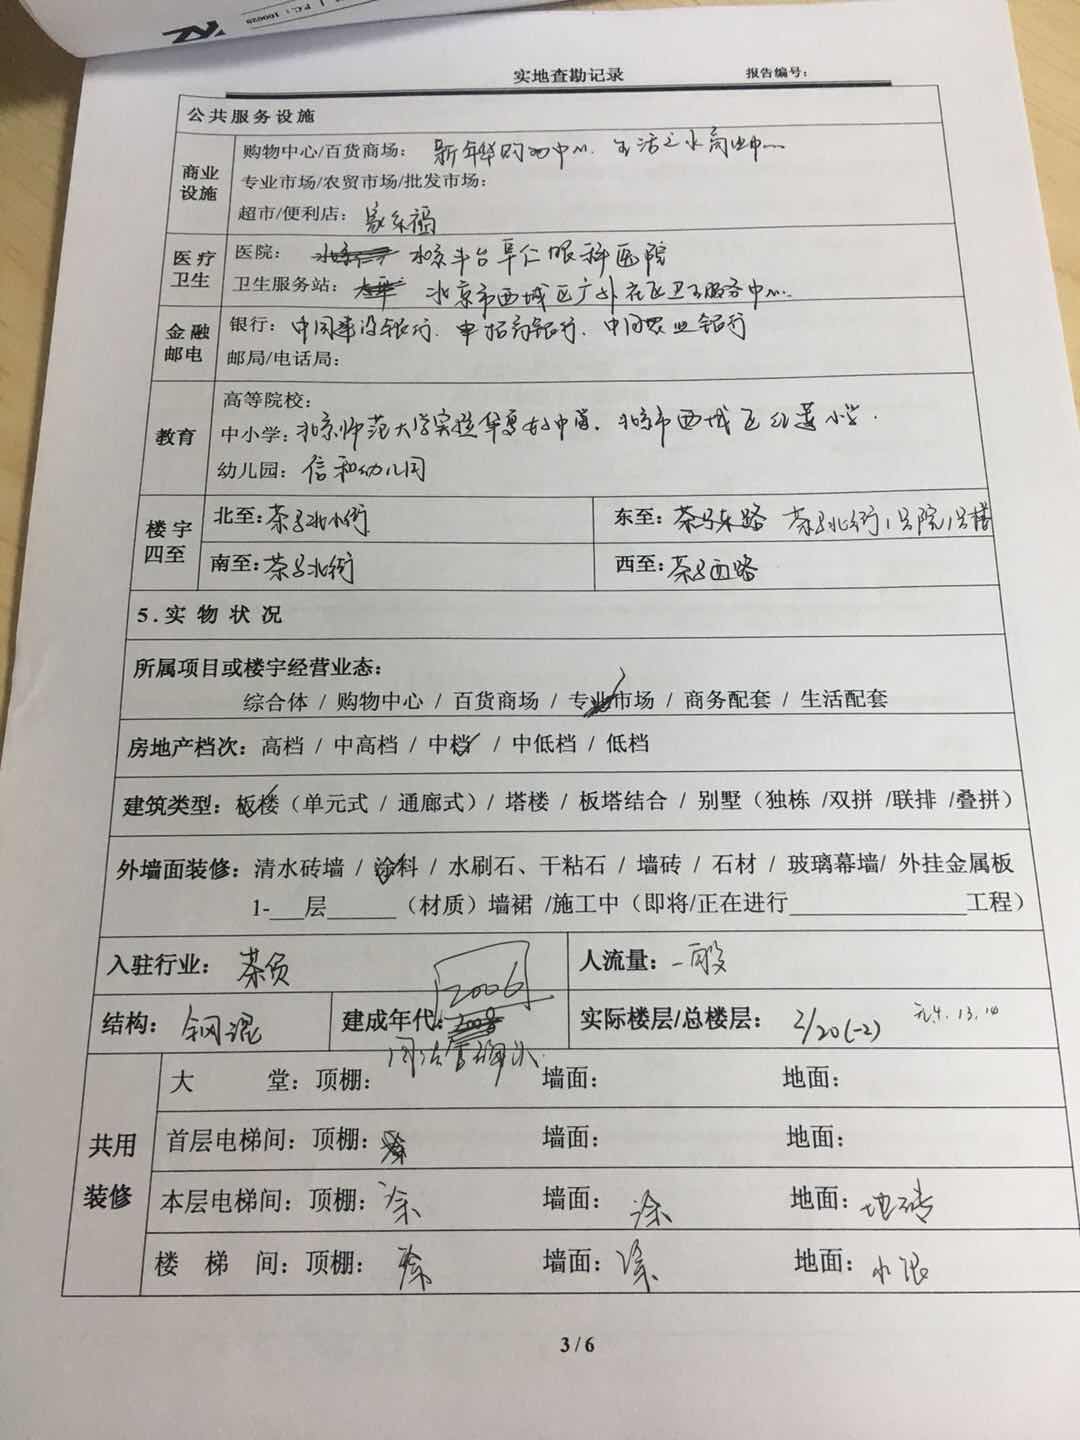 P.C.: 100020
实地查勘记录 报告编号:
公共服务设施
商业设施
购物中心/百货商场: 新年华购物中心. 生活之水商业中心
专业市场/农贸市场/批发市场:
超市/便利店: 家乐福
医疗卫生
医院: 北京丰台阜仁眼科医院
卫生服务站: 北京市西城区广外社区卫生服务中心
金融邮电
银行: 中国建设银行. 招商银行. 中国农业银行
邮局/电话局:
教育
高等院校:
中小学: 北京师范大学实验华夏女中. 北京市西城区红莲小学.
幼儿园: 信和幼儿园
楼宇四至
北至: 茶马北小街 东至: 茶马东路 茶马北街1号院1号楼
南至: 茶马北街 西至: 茶马西路
5.实物状况
所属项目或楼宇经营业态:
综合体 / 购物中心 / 百货商场 / 专业市场 / 商务配套 / 生活配套
房地产档次: 高档 / 中高档 / 中档 / 中低档 / 低档
建筑类型: 板楼（单元式 / 通廊式）/ 塔楼 / 板塔结合 / 别墅（独栋 /双拼 /联排 /叠拼）
外墙面装修: 清水砖墙 / 涂料 / 水刷石、干粘石 / 墙砖 / 石材 / 玻璃幕墙/ 外挂金属板
1-___层______（材质）墙裙 /施工中（即将/正在进行_______________工程）
入驻行业: 茶贸 人流量: 一般
结构: 钢混 建成年代: 2006 实际楼层/总楼层: 2/20(-2) 无4. 13. 14
共用装修
大 堂: 顶棚: 墙面: 地面:
首层电梯间: 顶棚: 墙面: 地面:
本层电梯间: 顶棚: 涂 墙面: 涂 地面: 地砖
楼 梯 间: 顶棚: 涂 墙面: 涂 地面: 水泥
3 / 6